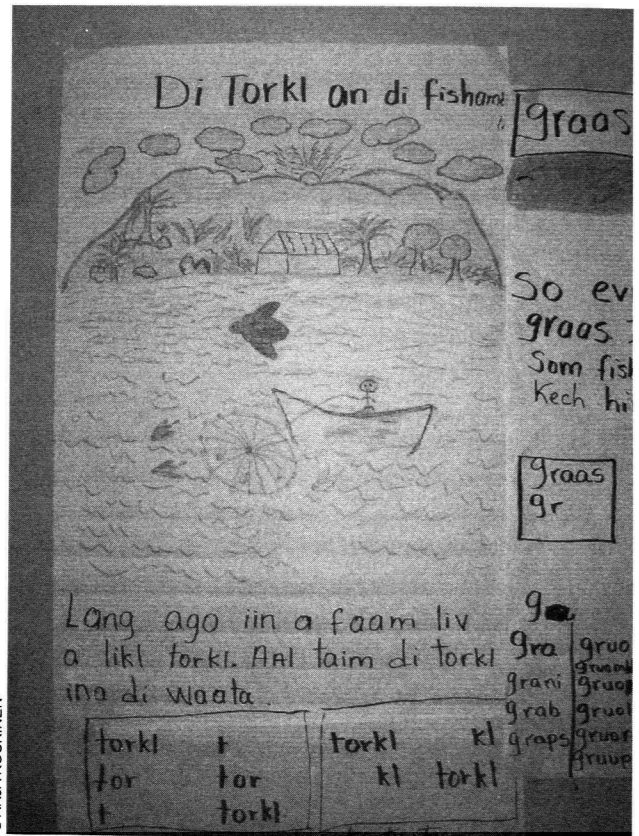 Di Torkl an di fishama
graas
So ev
graas
Som fish
Kech hi
graas
gr
Lang ago iin a faam liv
a likl torkl. AAl taim di torkl
ina di waata.
torkl t
tor tor
t torkl
torkl kl
kl torkl
gra
grani
grab
graps
gruo
gruop
gruol
gruor
gruup